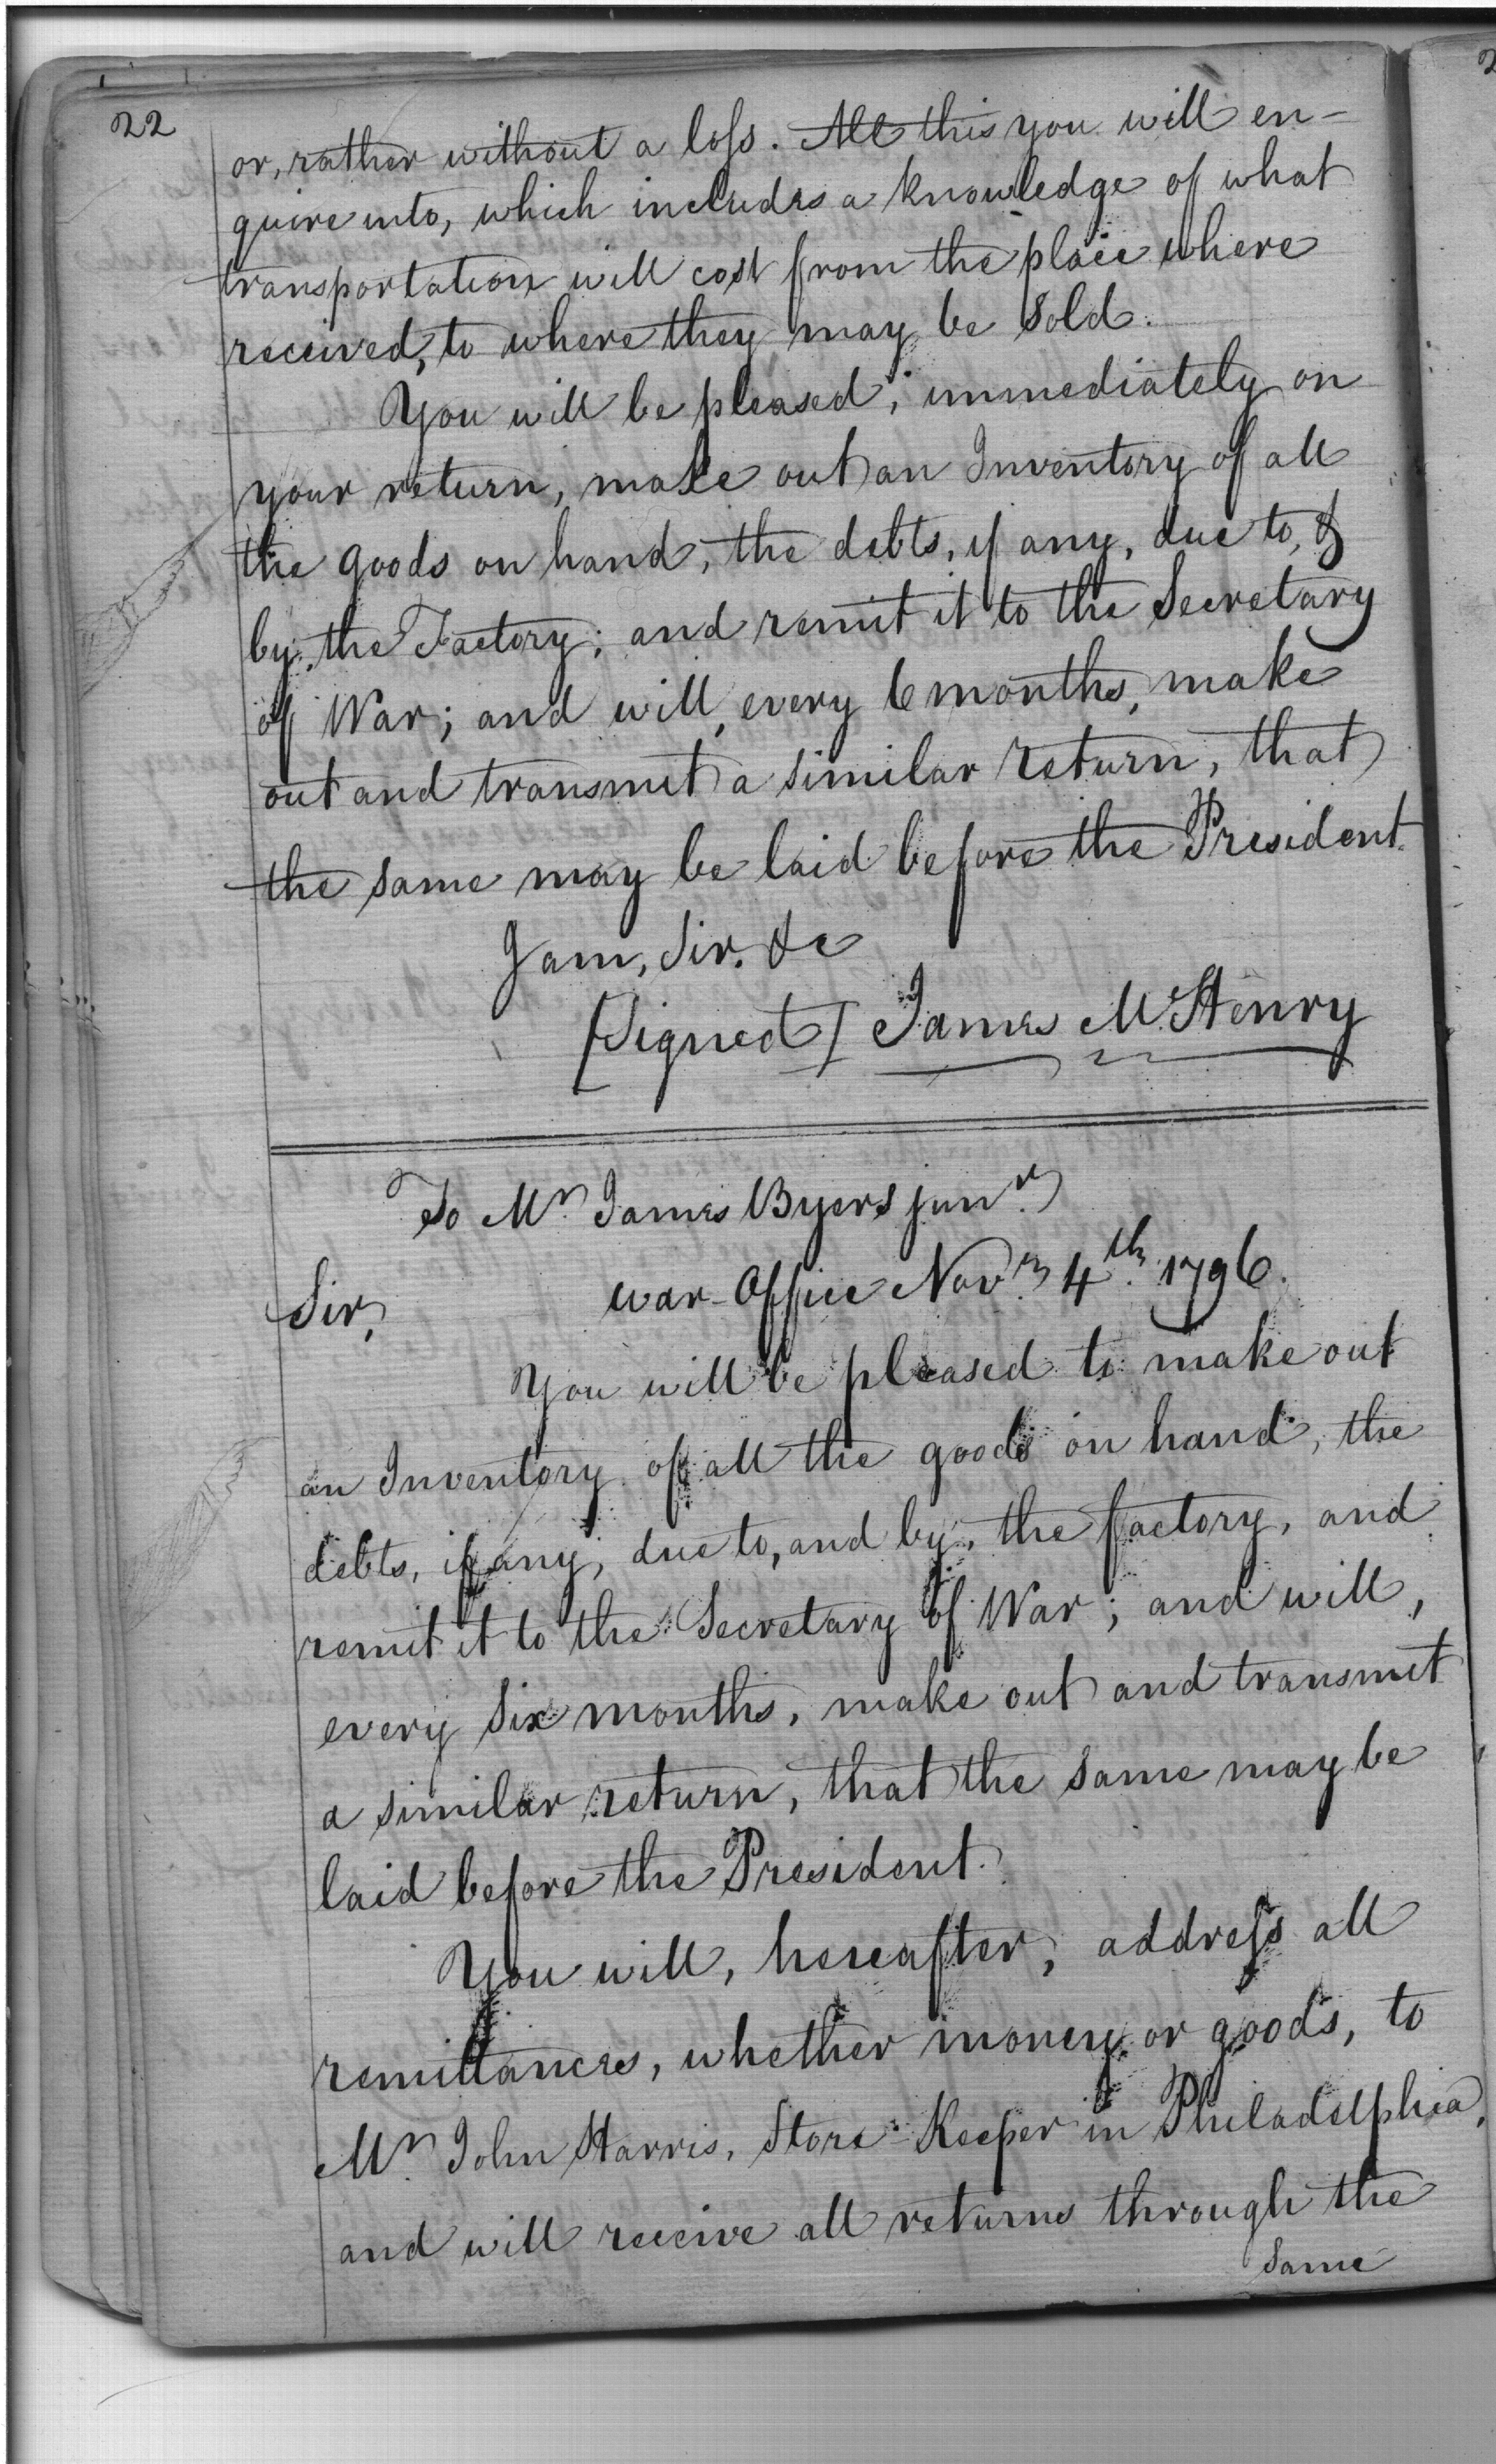 22
or, rather without a loss. All this you will en-
quire into, which includes a knowledge of what
transportation will cost from the place where
received, to where they may be sold.
You will be pleased, immediately on
your return, make out an Inventory of all
the goods on hand, the debts, if any, due to, &
by, the Factory; and remit it to the Secretary
of War; and will, every 6 months, make
out and transmit a similar return, that
the same may be laid before the President.
I am, Sir, &c
[Signed] James McHenry
To Mr. James Byers junr.
War-Office Novr. 4th. 1796.
Sir,
You will be pleased to make out
an Inventory of all the goods on hand, the
debts, if any, due to, and by, the factory, and
remit it to the Secretary of War; and will,
every six months, make out and transmit
a similar return, that the same may be
laid before the President.
You will, hereafter, address all
remittances, whether money or goods, to
Mr. John Harris, Store-Keeper in Philadelphia,
and will receive all returns through the
same